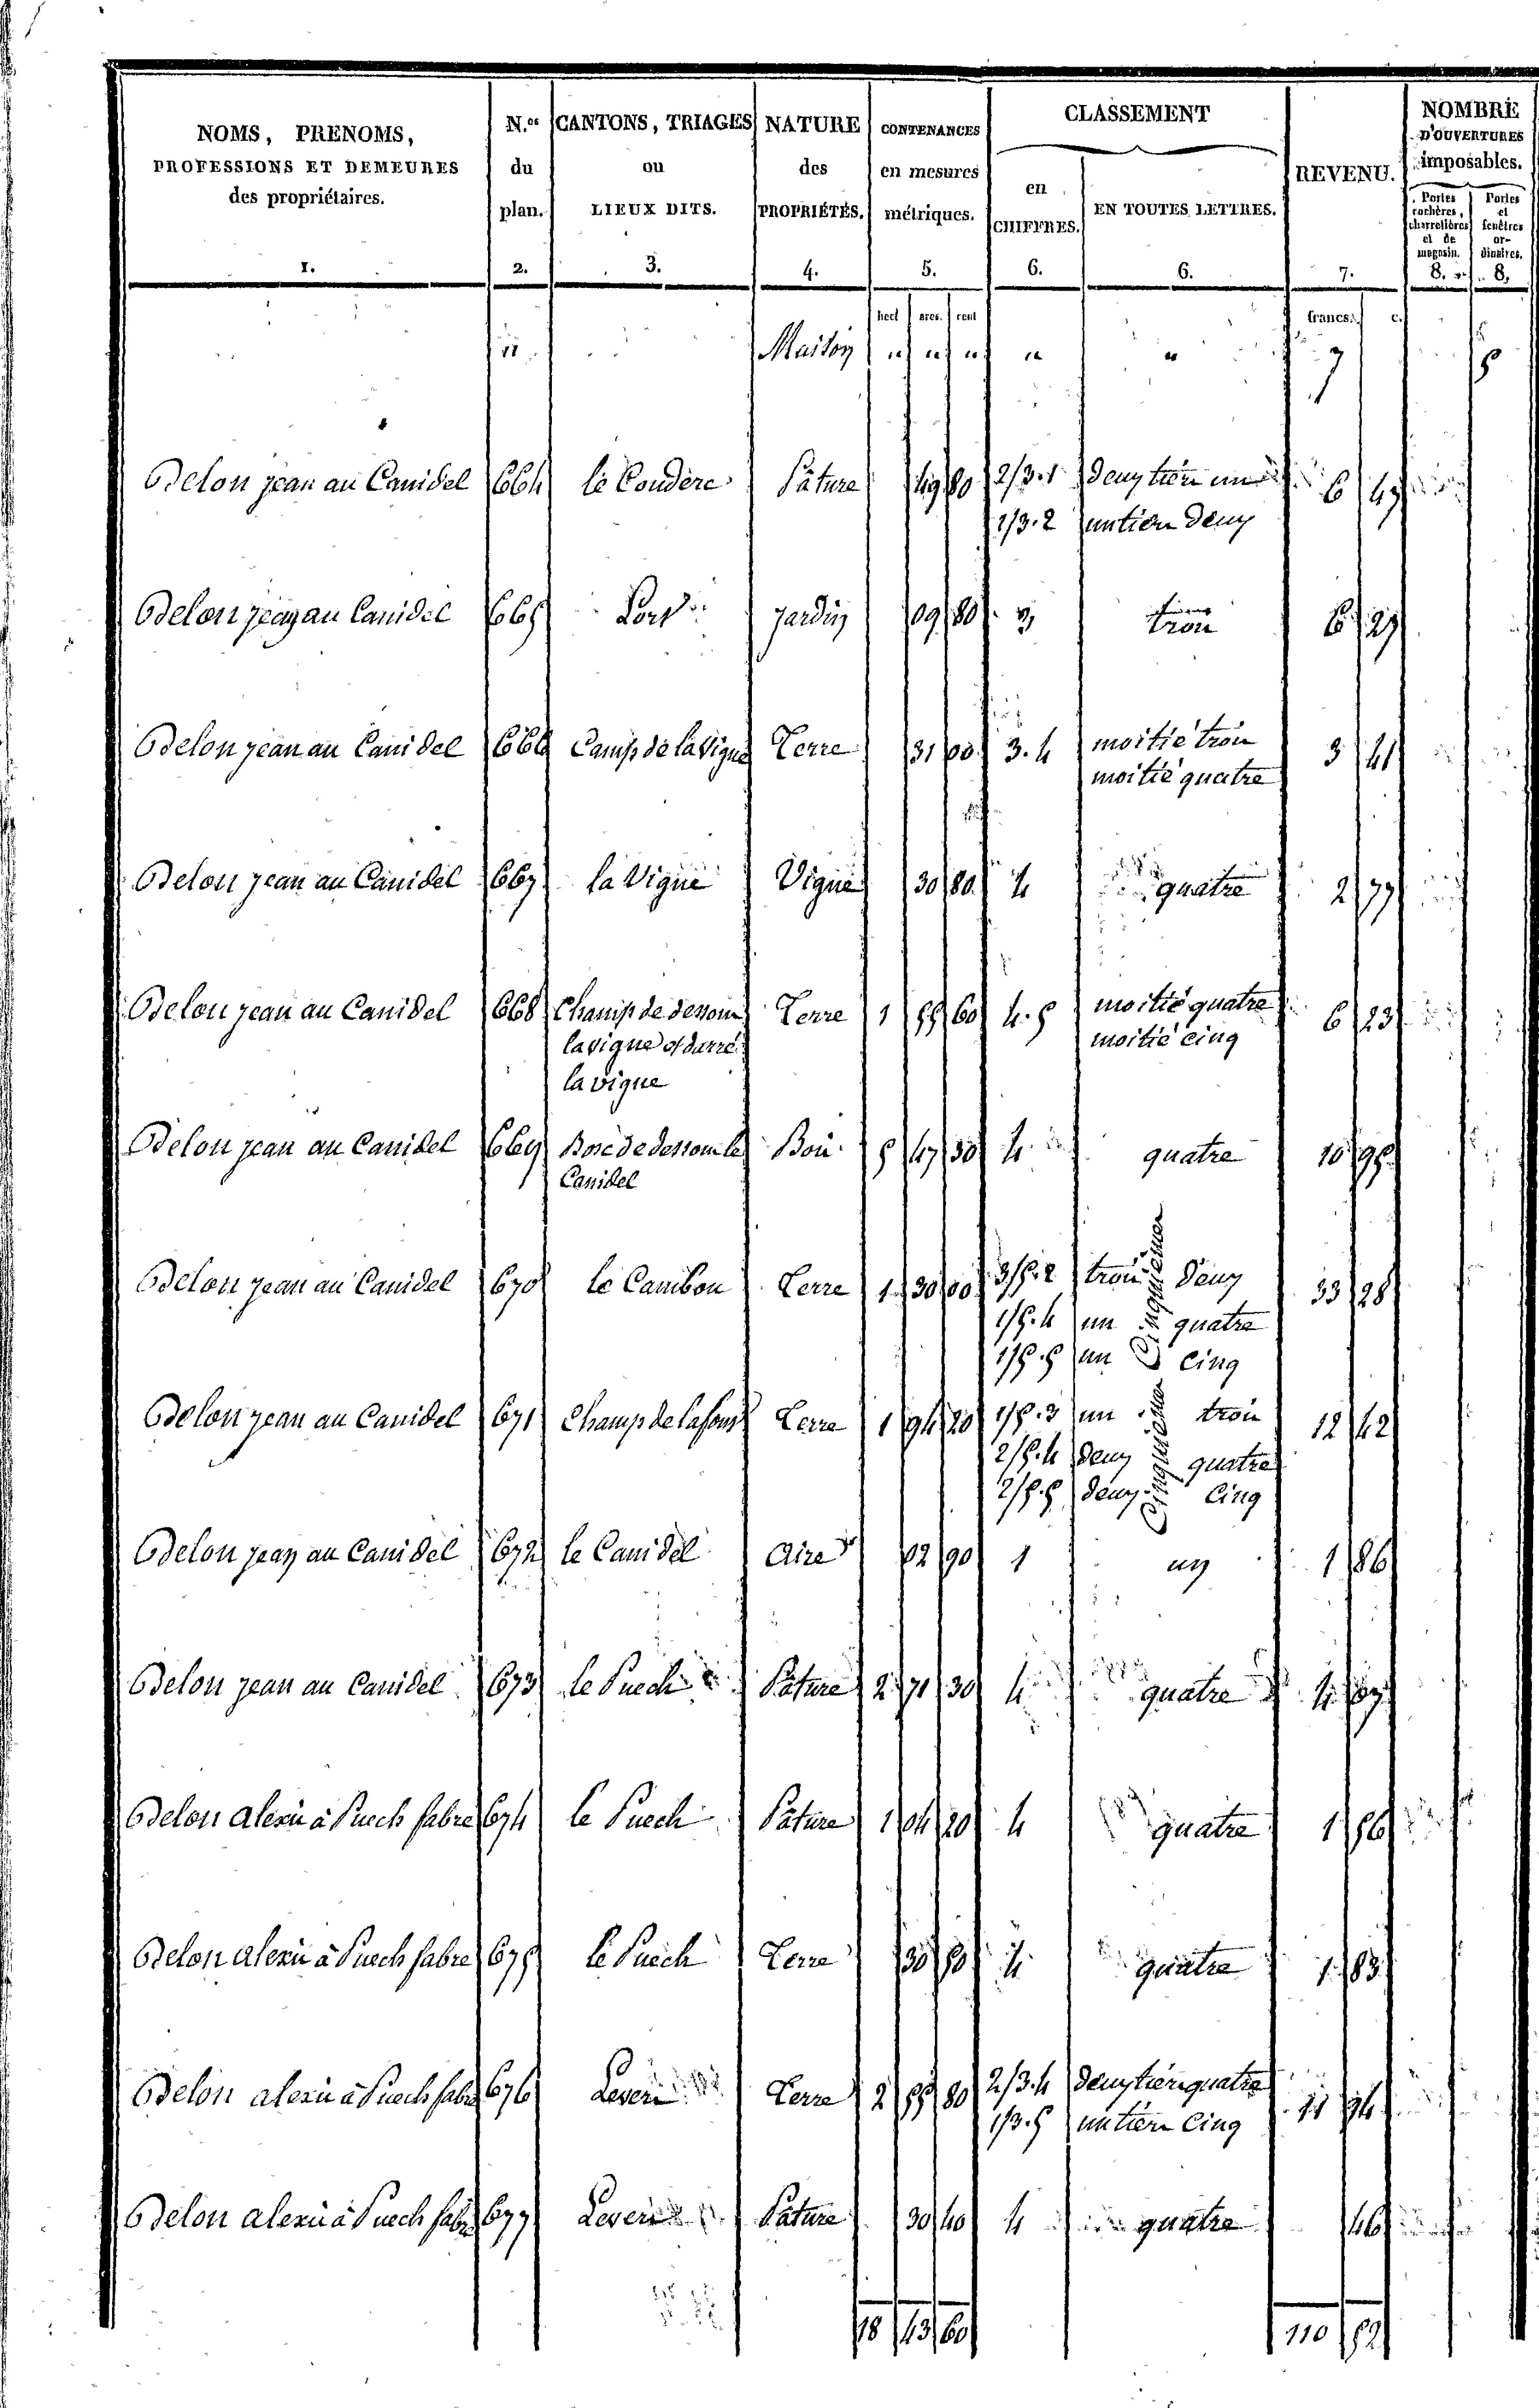 NOMS, PRENOMS, PROFESSIONS ET DEMEURES des propriétaires. 1.
N.os du plan. 2.
CANTONS, TRIAGES ou LIEUX DITS. 3.
NATURE des PROPRIÉTÉS. 4.
CONTENANCES en mesures métriques. 5.
CLASSEMENT
en CHIFFRES. 6.
EN TOUTES LETTRES. 6.
REVENU. 7.
NOMBRE D'OUVERTURES imposables.
Portes cochères, charretières et de magasin. 8.
Portes et fenêtres ordinaires. 8.
hect ares. cent francs. c.
" Maison " " " " " 7 5
Delon jean au Canidel 664 le Couderc Pâture 49 80 2/3.1 deux tiers un 6 47
1/3.2 un tiers deux
Delon jean au Canidel 665 jardin 09 80 3 trois 6 27
Delon jean au Canidel 666 Camp de la Vigne Terre 31 00 3.4 moitié trois 3 41
moitié quatre
Delon jean au Canidel 667 la Vigne Vigne 30 80 4 quatre 2 77
Delon jean au Canidel 668 Champ de dessous Terre 1 55 60 4.5 moitié quatre 6 23
la vigne et darré moitié cinq
la vigne
Delon jean au Canidel 669 Bois de dessous le Bois 5 47 50 4 quatre 10 95
Canidel
Delon jean au Canidel 670 le Cambon Terre 1 30 00 3/5.2 trois deux 33 28
1/5.4 un cinquièmes quatre
1/5.5 un cinq
Delon jean au Canidel 671 Champ de lafons Terre 1 94 20 1/5.3 un trois 12 42
2/5.4 deux cinquièmes quatre
2/5.5 deux cinq
Delon jean au Canidel 672 le Canidel Aire 02 90 1 un 1 86
Delon jean au Canidel 673 le Puech Pature 2 71 30 4 quatre 4 07
Delon alexis à Puech fabre 674 le Puech Pature 1 04 20 4 quatre 1 56
Delon alexis à Puech fabre 675 le Puech Terre 30 50 4 quatre 1 83
Delon alexis à Puech fabre 676 Terre 2 99 80 2/3.4 deux tiers quatre 11 94
1/3.5 un tiers cinq
Delon alexis à Puech fabre 677 Pature 30 40 4 quatre 46
18 43 60 110 52